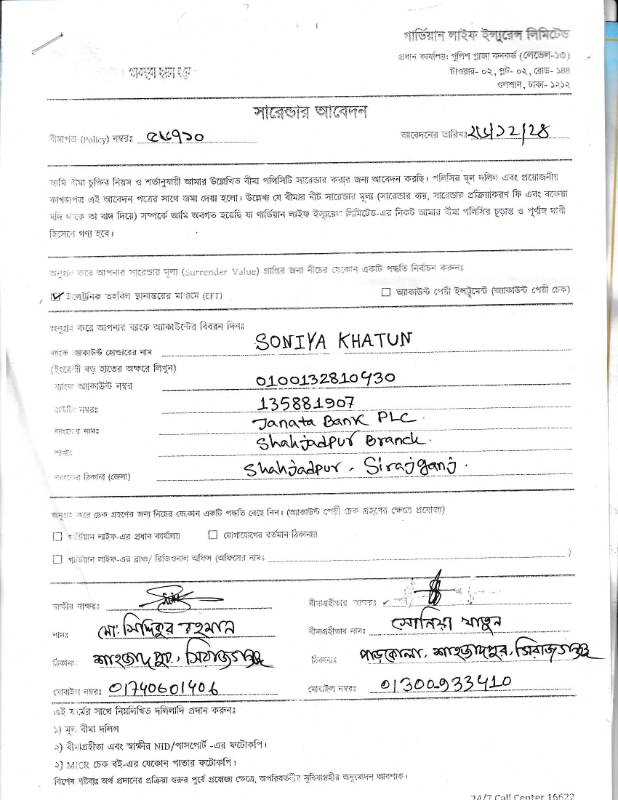 গার্ডিয়ান লাইফ ইন্স্যুরেন্স লিমিটেড
প্রধান কার্যালয়: পুলিশ প্লাজা কনকর্ড (লেভেল-১৩)
টাওয়ার- ০২, প্লট- ০২, রোড- ১৪৪
গুলশান, ঢাকা- ১২১২
সারেন্ডার আবেদন
বীমাপত্র (Policy) নম্বরঃ ৫৬৭১০ আবেদনের তারিখঃ ২৬/১২/২৪
আমি বীমা চুক্তির নিয়ম ও শর্তানুযায়ী আমার উল্লেখিত বীমা পলিসিটি সারেন্ডার করার জন্য আবেদন করছি। পলিসির মূল দলিল এবং প্রয়োজনীয়
কাগজপত্র এই আবেদন পত্রের সাথে জমা দেয়া হলো। উল্লেখ্য যে বীমার নীট সারেন্ডার মূল্য (সারেন্ডার ব্যয়, সারেন্ডার প্রক্রিয়াকরণ ফি এবং বকেয়া
যদি থাকে তা বাদ দিয়ে) সম্পর্কে আমি অবগত হয়েছি যা গার্ডিয়ান লাইফ ইন্স্যুরেন্স লিমিটেড-এর নিকট আমার বীমা পলিসির চূড়ান্ত ও পূর্ণাঙ্গ দাবী
হিসেবে গণ্য হবে।
অনুগ্রহ করে আপনার সারেন্ডার মূল্য (Surrender Value) প্রাপ্তির জন্য নীচের যেকোন একটি পদ্ধতি নির্বাচন করুনঃ
ইলেক্ট্রনিক তহবিল স্থানান্তরের মাধ্যমে (EFT) অ্যাকাউন্ট পেয়ী ইন্সট্রুমেন্ট (অ্যাকাউন্ট পেয়ী চেক)
অনুগ্রহ করে আপনার ব্যাংক অ্যাকাউন্টের বিবরন দিনঃ
ব্যাংক অ্যাকাউন্ট হোল্ডারের নাম SONIYA KHATUN
(ইংরেজী বড় হাতের অক্ষরে লিখুন)
ব্যাংক অ্যাকাউন্ট নম্বর 0100132810930
রাউটিং নম্বরঃ 135881907
ব্যাংকের নামঃ Janata Bank PLC.
শাখাঃ Shahjadpur Branch.
ব্যাংকের ঠিকানা (জেলা) Shahjadpur, Sirajganj.
অনুগ্রহ করে চেক গ্রহণের জন্য নিচের যেকোন একটি পদ্ধতি বেছে নিন। (অ্যাকাউন্ট পেয়ী চেক গ্রহণের ক্ষেত্রে প্রযোজ্য)
গার্ডিয়ান লাইফ-এর প্রধান কার্যালয় যোগাযোগের বর্তমান ঠিকানায়
গার্ডিয়ান লাইফ-এর ব্রাঞ্চ/ রিজিওনাল অফিস (অফিসের নামঃ )
স্বাক্ষীর স্বাক্ষরঃ বীমাগ্রহীতার স্বাক্ষরঃ
নামঃ মোঃ সিদ্দিকুর রহমান বীমাগ্রহীতার নামঃ সোনিয়া খাতুন
ঠিকানাঃ শাহজাদপুর, সিরাজগঞ্জ ঠিকানাঃ পাড়কোলা, শাহজাদপুর, সিরাজগঞ্জ
মোবাইল নম্বরঃ 01740601406 মোবাইল নম্বরঃ 01300933410
এই ফর্মের সাথে নিম্নলিখিত দলিলাদি প্রদান করুনঃ
১) মূল বীমা দলিল
২) বীমাগ্রহীতা এবং স্বাক্ষীর NID/পাসপোর্ট -এর ফটোকপি।
৩) MICR চেক বই-এর যেকোন পাতার ফটোকপি।
বিশেষ দ্রষ্টব্যঃ অর্থ প্রদানের প্রক্রিয়া শুরুর পূর্বে প্রযোজ্য ক্ষেত্রে, অপরিবর্তনীয় সুবিধাভোগীর অনুমোদন আবশ্যক।
24/7 Call Center 16622